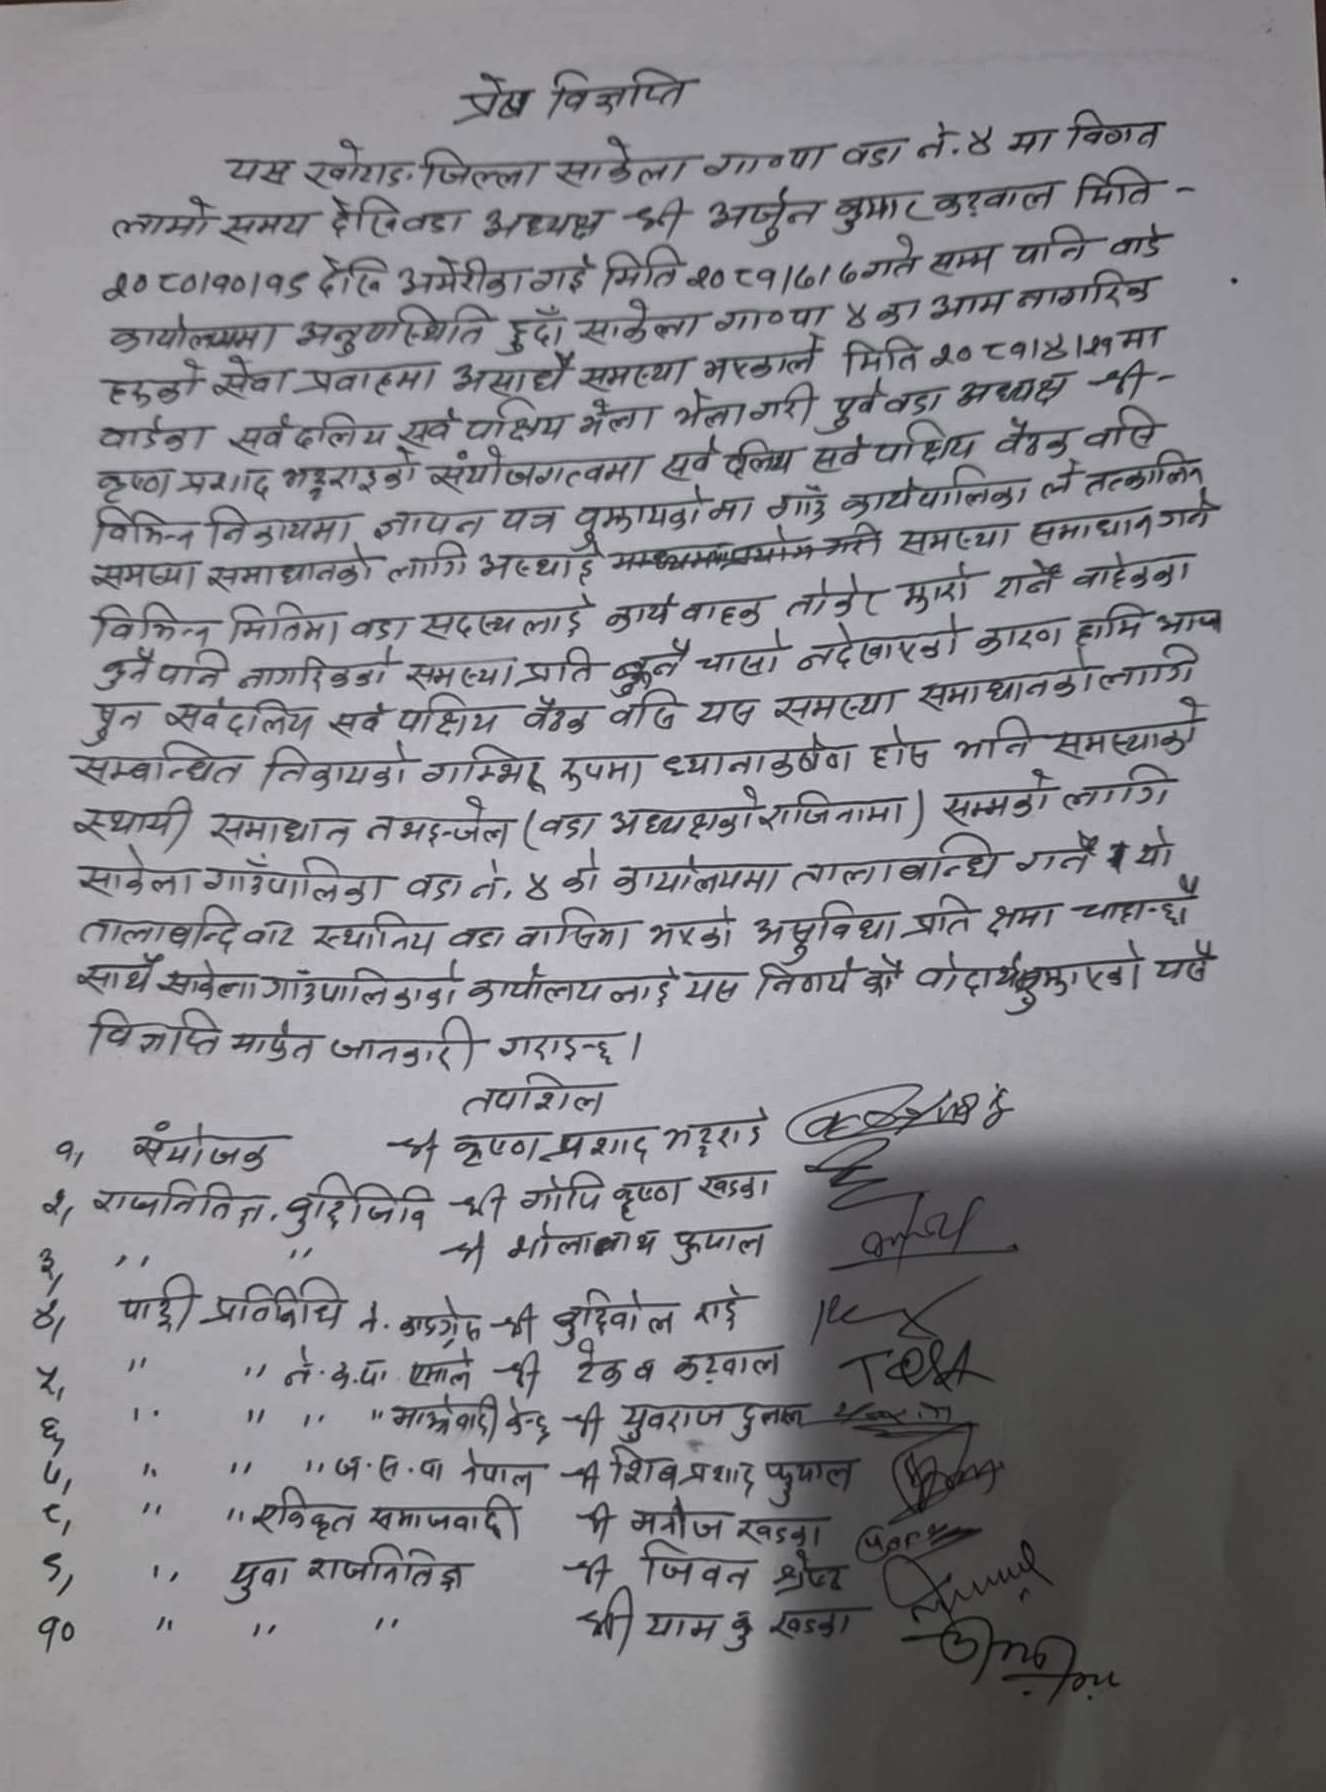 प्रेस विज्ञप्ति
यस खोटाङ जिल्ला साकेला गा०पा वडा नं. ४ मा विगत
लामो समय देखि वडा अध्यक्ष श्री अर्जुन कुमार कटवाल मिति -
२०८०।१०।१९ देखि अमेरीका गई मिति २०८१।७।७ गते सम्म पनि वार्ड
कार्यालयमा अनुपस्थिति हुदाँ साकेला गा०पा ४ का आम नागरिक
हरुको सेवा प्रवाहमा असाध्यै समस्या भएकाले मिति २०८१।४।२१ मा
वार्डका सर्वदलिय सर्व पक्षिय भेला भेला गरी पुर्व वडा अध्यक्ष श्री -
कृष्ण प्रशाद भट्टराइको संयोजगत्वमा सर्व दलिय सर्व पक्षिय बैठक वसि
विभिन्न निकायमा ज्ञापन पत्र वुझायकोमा गाउँ कार्यपालिका ले तत्कालिन
समस्या समाधानको लागि अस्थाई समस्या समाधान गर्न
विभिन्न मितिमा वडा सदस्य लाई कार्य वाहक तोकेर झारो टार्ने वाहेकका
कुनै पनि नागरिकको समस्या प्रति कुनै चासो नदेखाएको कारण हामि आज
पुन सर्वदलिय सर्व पक्षिय वैठक वसि यस समस्या समाधानको लागि
सम्बन्धित निकायको गम्भिर रुपमा ध्यानाकर्षण होस भनि समस्याको
स्थायी समाधान नभइन्जेल (वडा अध्यक्षको राजिनामा) सम्मको लागि
साकेला गाउँपालिका वडा नं. ४ को कार्यालयमा तालाबन्धि गर्ने र यो
तालाबन्दि वाट स्थानिय वडा वासिमा भएको असुविधा प्रति क्षमा चाहान्छौ
साथै साकेला गाउँपालिकाको कार्यालय लाई यस निर्णय को वोदार्थ वुझाएको यसै
विज्ञप्ति मार्फत जानकारी गराइन्छ।
तपशिल
१, संयोजक श्री कृष्ण प्रशाद भट्टराई
२, राजनितिज्ञ, वुद्दिजिवि श्री गोपि कृष्ण खडका
३, ,, ,, श्री भोलानाथ फुयाल
४, पार्टी प्रतिनिधि ने. काङग्रेस श्री वुद्दिवोल राई
५, " " ने.क.पा. एमाले श्री टेक ब कटवाल
६, " " " " माओवादी केन्द्र श्री युवराज
७, " " " ज.स.पा नेपाल श्री शिव प्रशाद फुयाल
८, " " एकिकृत समाजवादी श्री मनोज खडका
९, " युवा राजनितिज्ञ श्री जिवन श्रेष्ठ
१० " " " श्री याम कु खडका